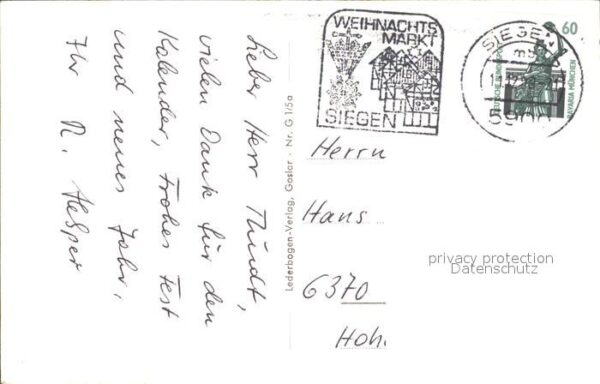 Lieber Herr Mundt,
vielen Dank für den
Kalender, frohes Fest
und neues Jahr,
Ihr R. Hesper
Lederbogen-Verlag, Goslar · Nr. G 1/5a
WEIHNACHTS
MARKT
SIEGEN
SIEGEN
60
DEUTSCHE BUNDESPOST
BAVARIA MÜNCHEN
Herrn
Hans
6370
Hoh.
privacy protection
Datenschutz